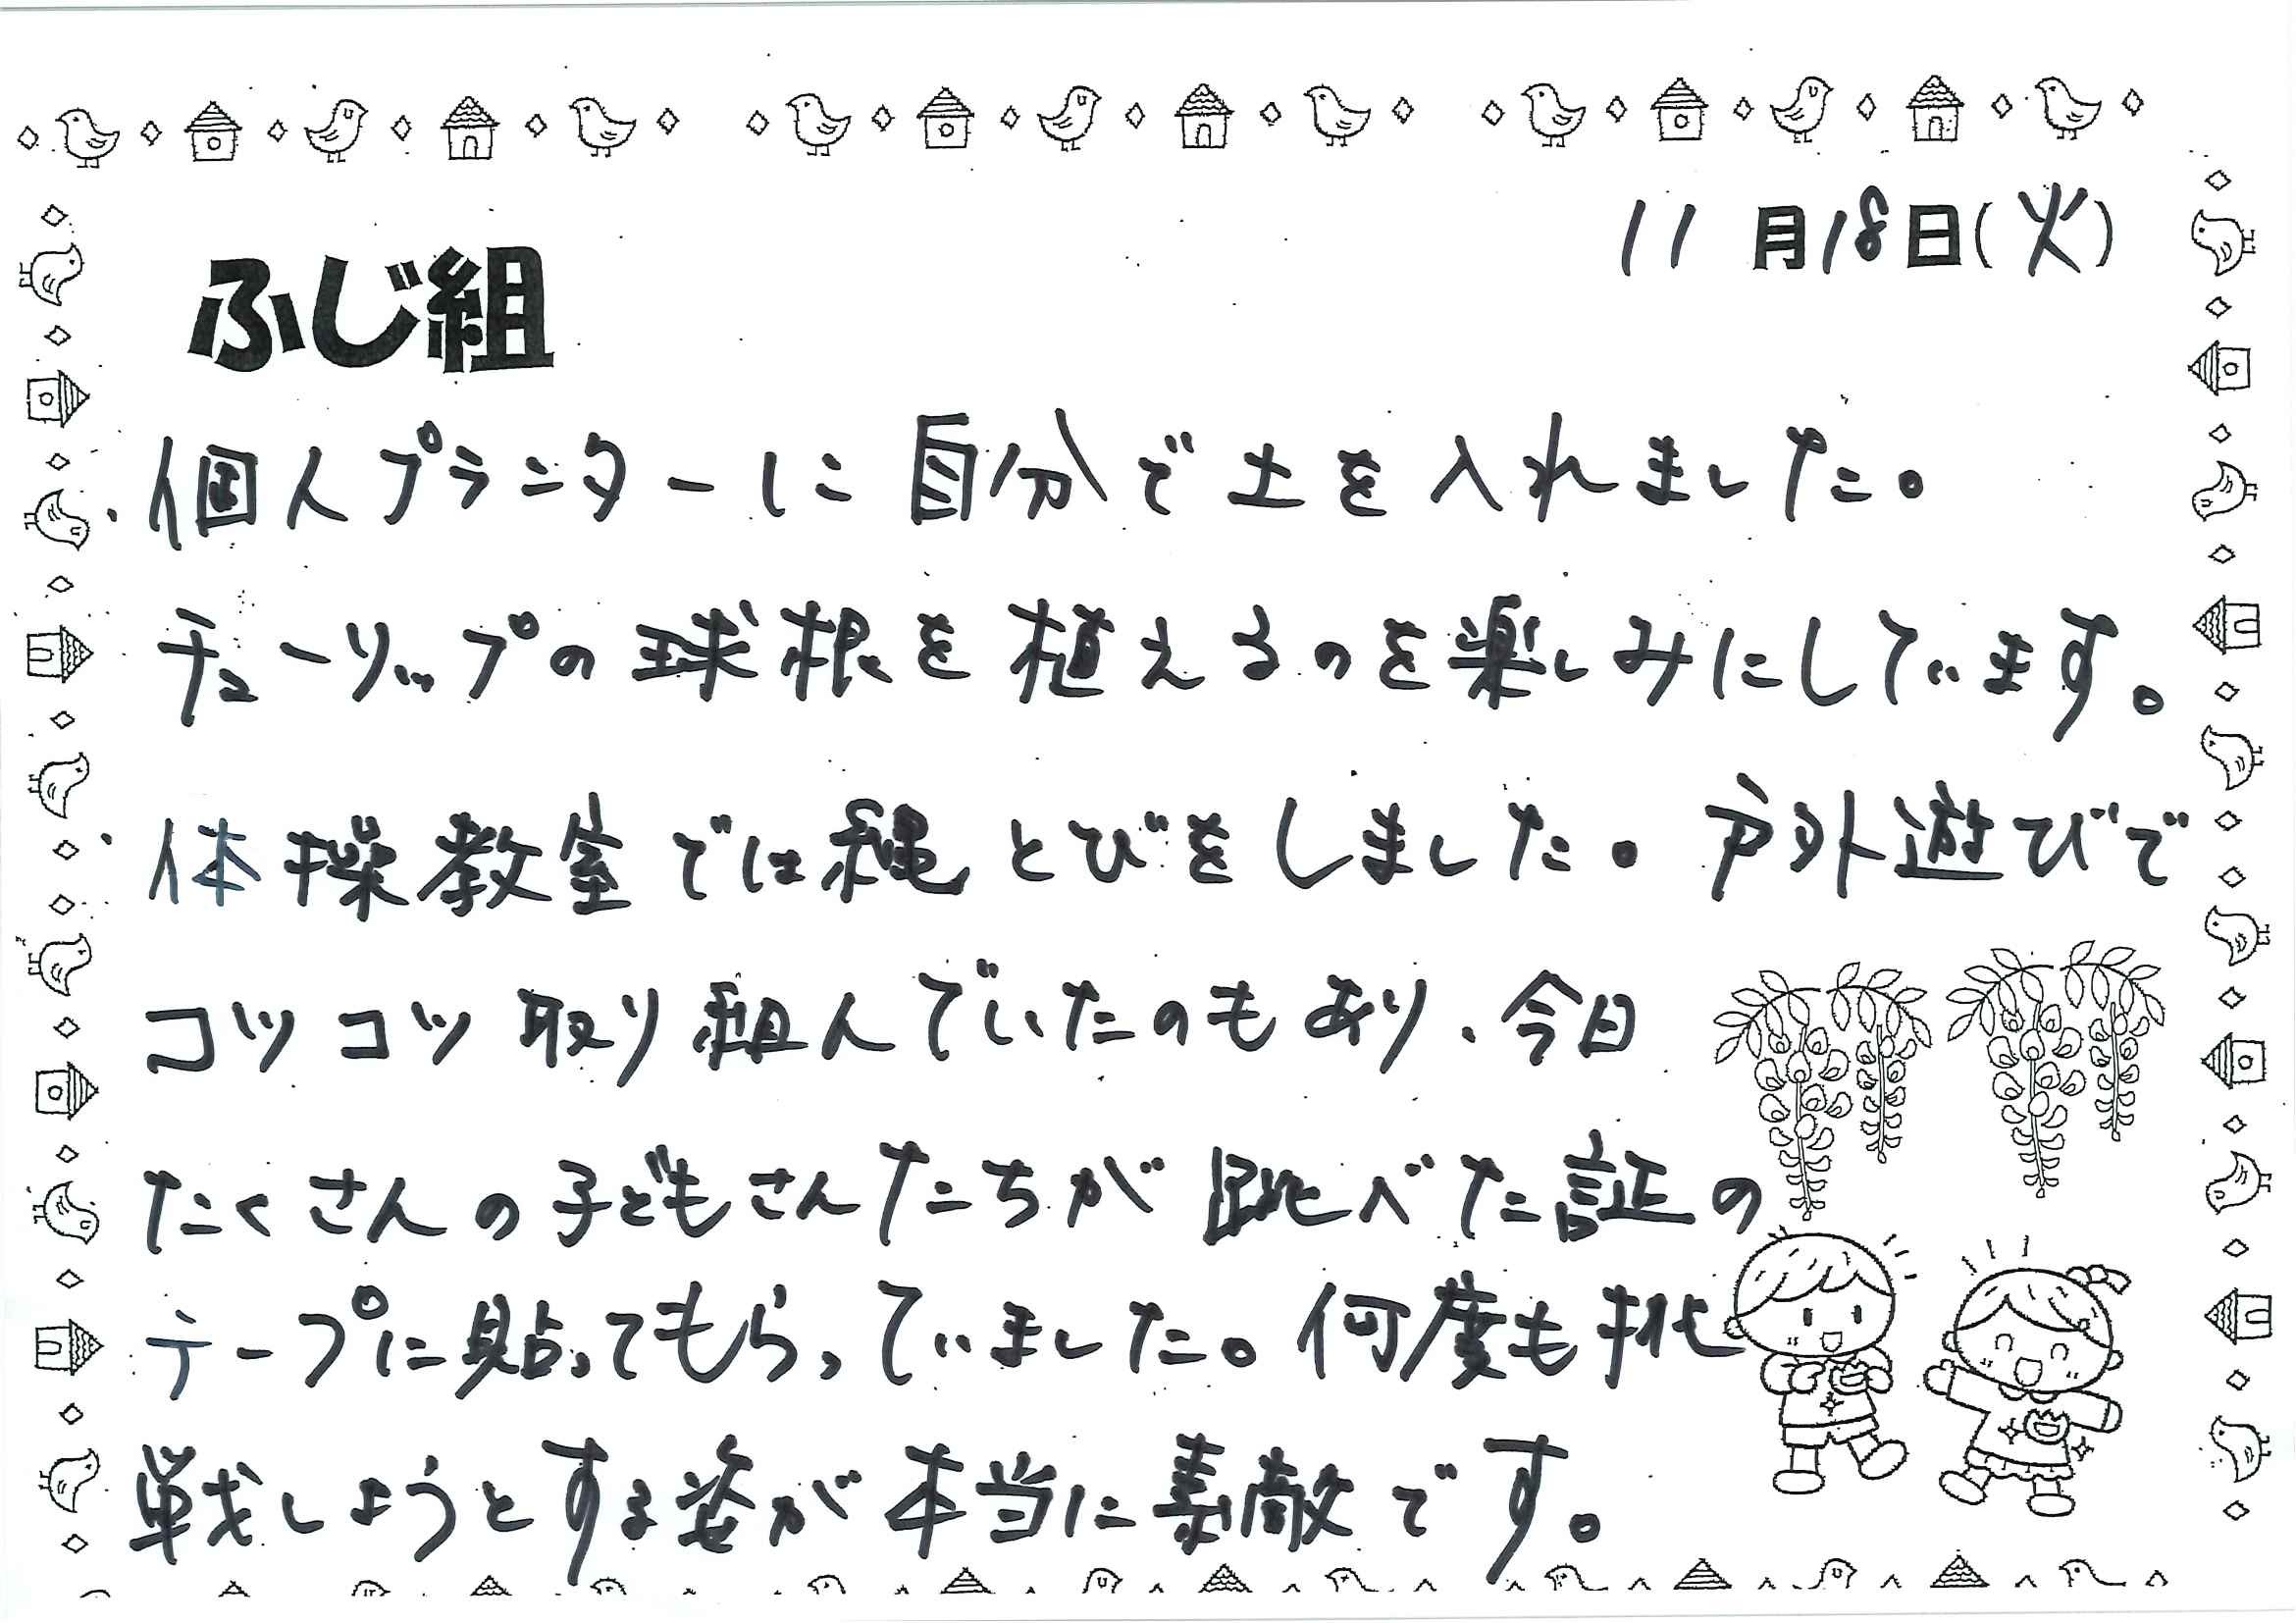 11月18日(火)
ふじ組
・個人プランターに自分で土を入れました。
チューリップの球根を植えるのを楽しみにしています。
・体操教室では縄とびをしました。戸外遊びで
コツコツ取り組んでいたのもあり、今日
たくさんの子どもさんたちが跳べた証の
テープに貼ってもらっていました。何度も挑
戦しようとする姿が本当に素敵です。